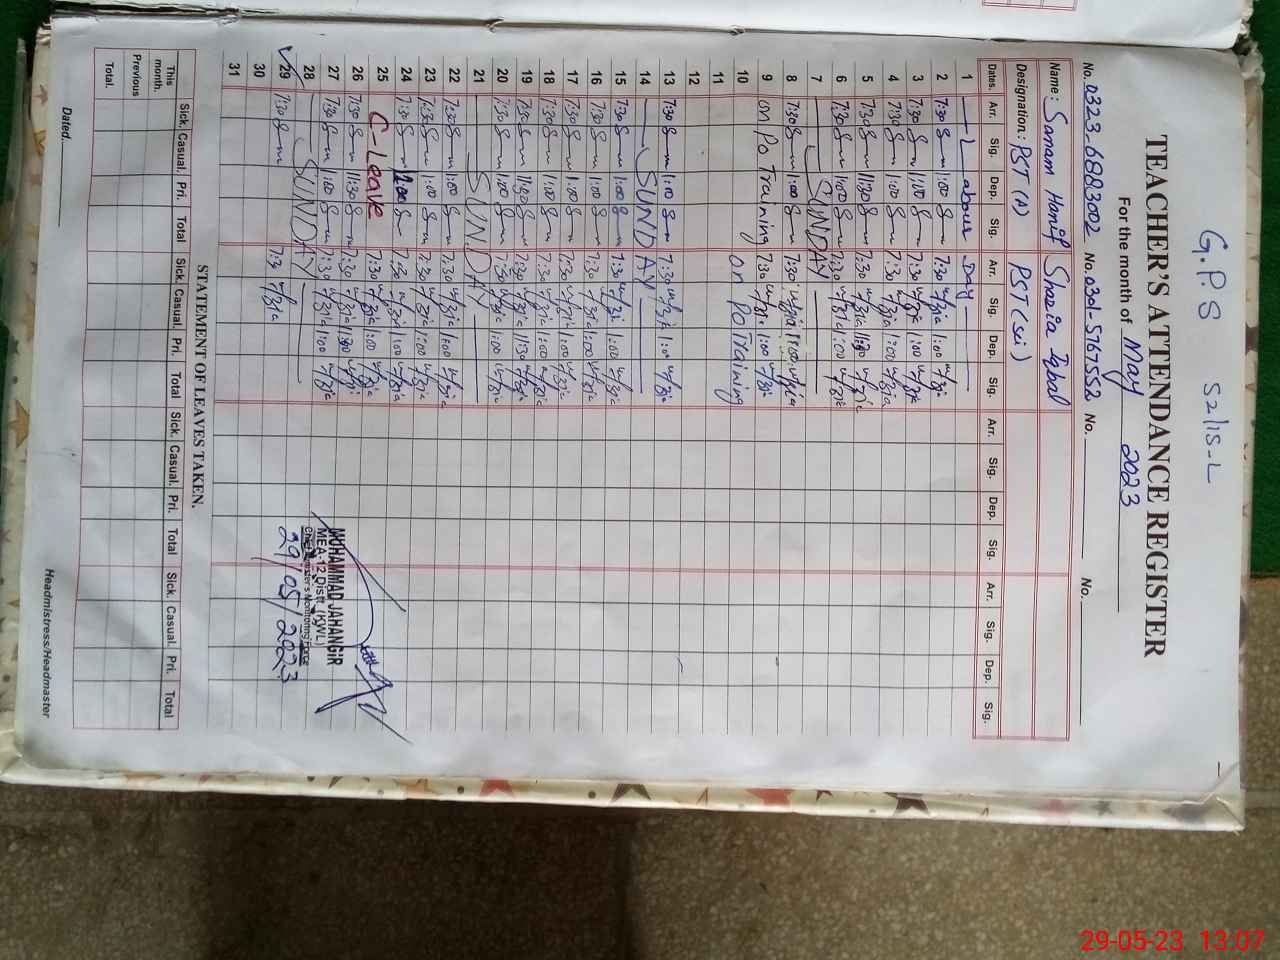 G.P.S 52/15-L
TEACHER'S ATTENDANCE REGISTER
For the month of May 2023
No. 0323-6888302 No. 0301-5767552 No. No.
Name: Sanam Hanif Shazia Iqbal
Designation: PST (A) PST (Sci)
Dates. Arr. Sig. Dep. Sig. Arr. Sig. Dep. Sig. Arr. Sig. Dep. Sig. Arr. Sig. Dep. Sig.
1 Labour Day
2 7:30 1:00 7:30 1:00
3 7:30 1:00 7:30 1:00
4 7:30 1:00 7:30 1:00
5 7:30 11:30 7:30
6 7:30 1:00 7:30 1:00
7 SUNDAY
8 7:30 1:00 7:30 1:00
9 7:30 1:00
10 on Po Training on Po Training
11
12
13 7:30 1:00 7:30 1:00
14 SUNDAY
15 7:30 1:00 7:30 1:00
16 7:30 1:00 7:30 1:00
17 7:30 1:00 7:30 1:00
18 7:30 1:00 7:30 1:00
19 7:30 11:30 7:30 11:30
20 7:30 1:00 7:30 1:00
21 SUNDAY
22 7:30 1:00 7:30 1:00
23 7:30 1:00 7:30 1:00
24 7:30 1:00 7:30 1:00
25 C-Leave 7:30 1:00
26 7:30 11:30 7:30 11:30
27 7:30 1:00 7:30 1:00
28 SUNDAY
29 7:30 7:30
30
31
MUHAMMAD JAHANGIR
MEA-12 Distt (KWL)
Chief Minister's Monitoring Force
29/05/2023
STATEMENT OF LEAVES TAKEN.
Sick. Casual. Pri. Total Sick. Casual. Pri. Total Sick. Casual. Pri. Total Sick. Casual. Pri. Total
This month.
Previous
Total.
Dated.
Headmistress/Headmaster
29-05-23 13:07